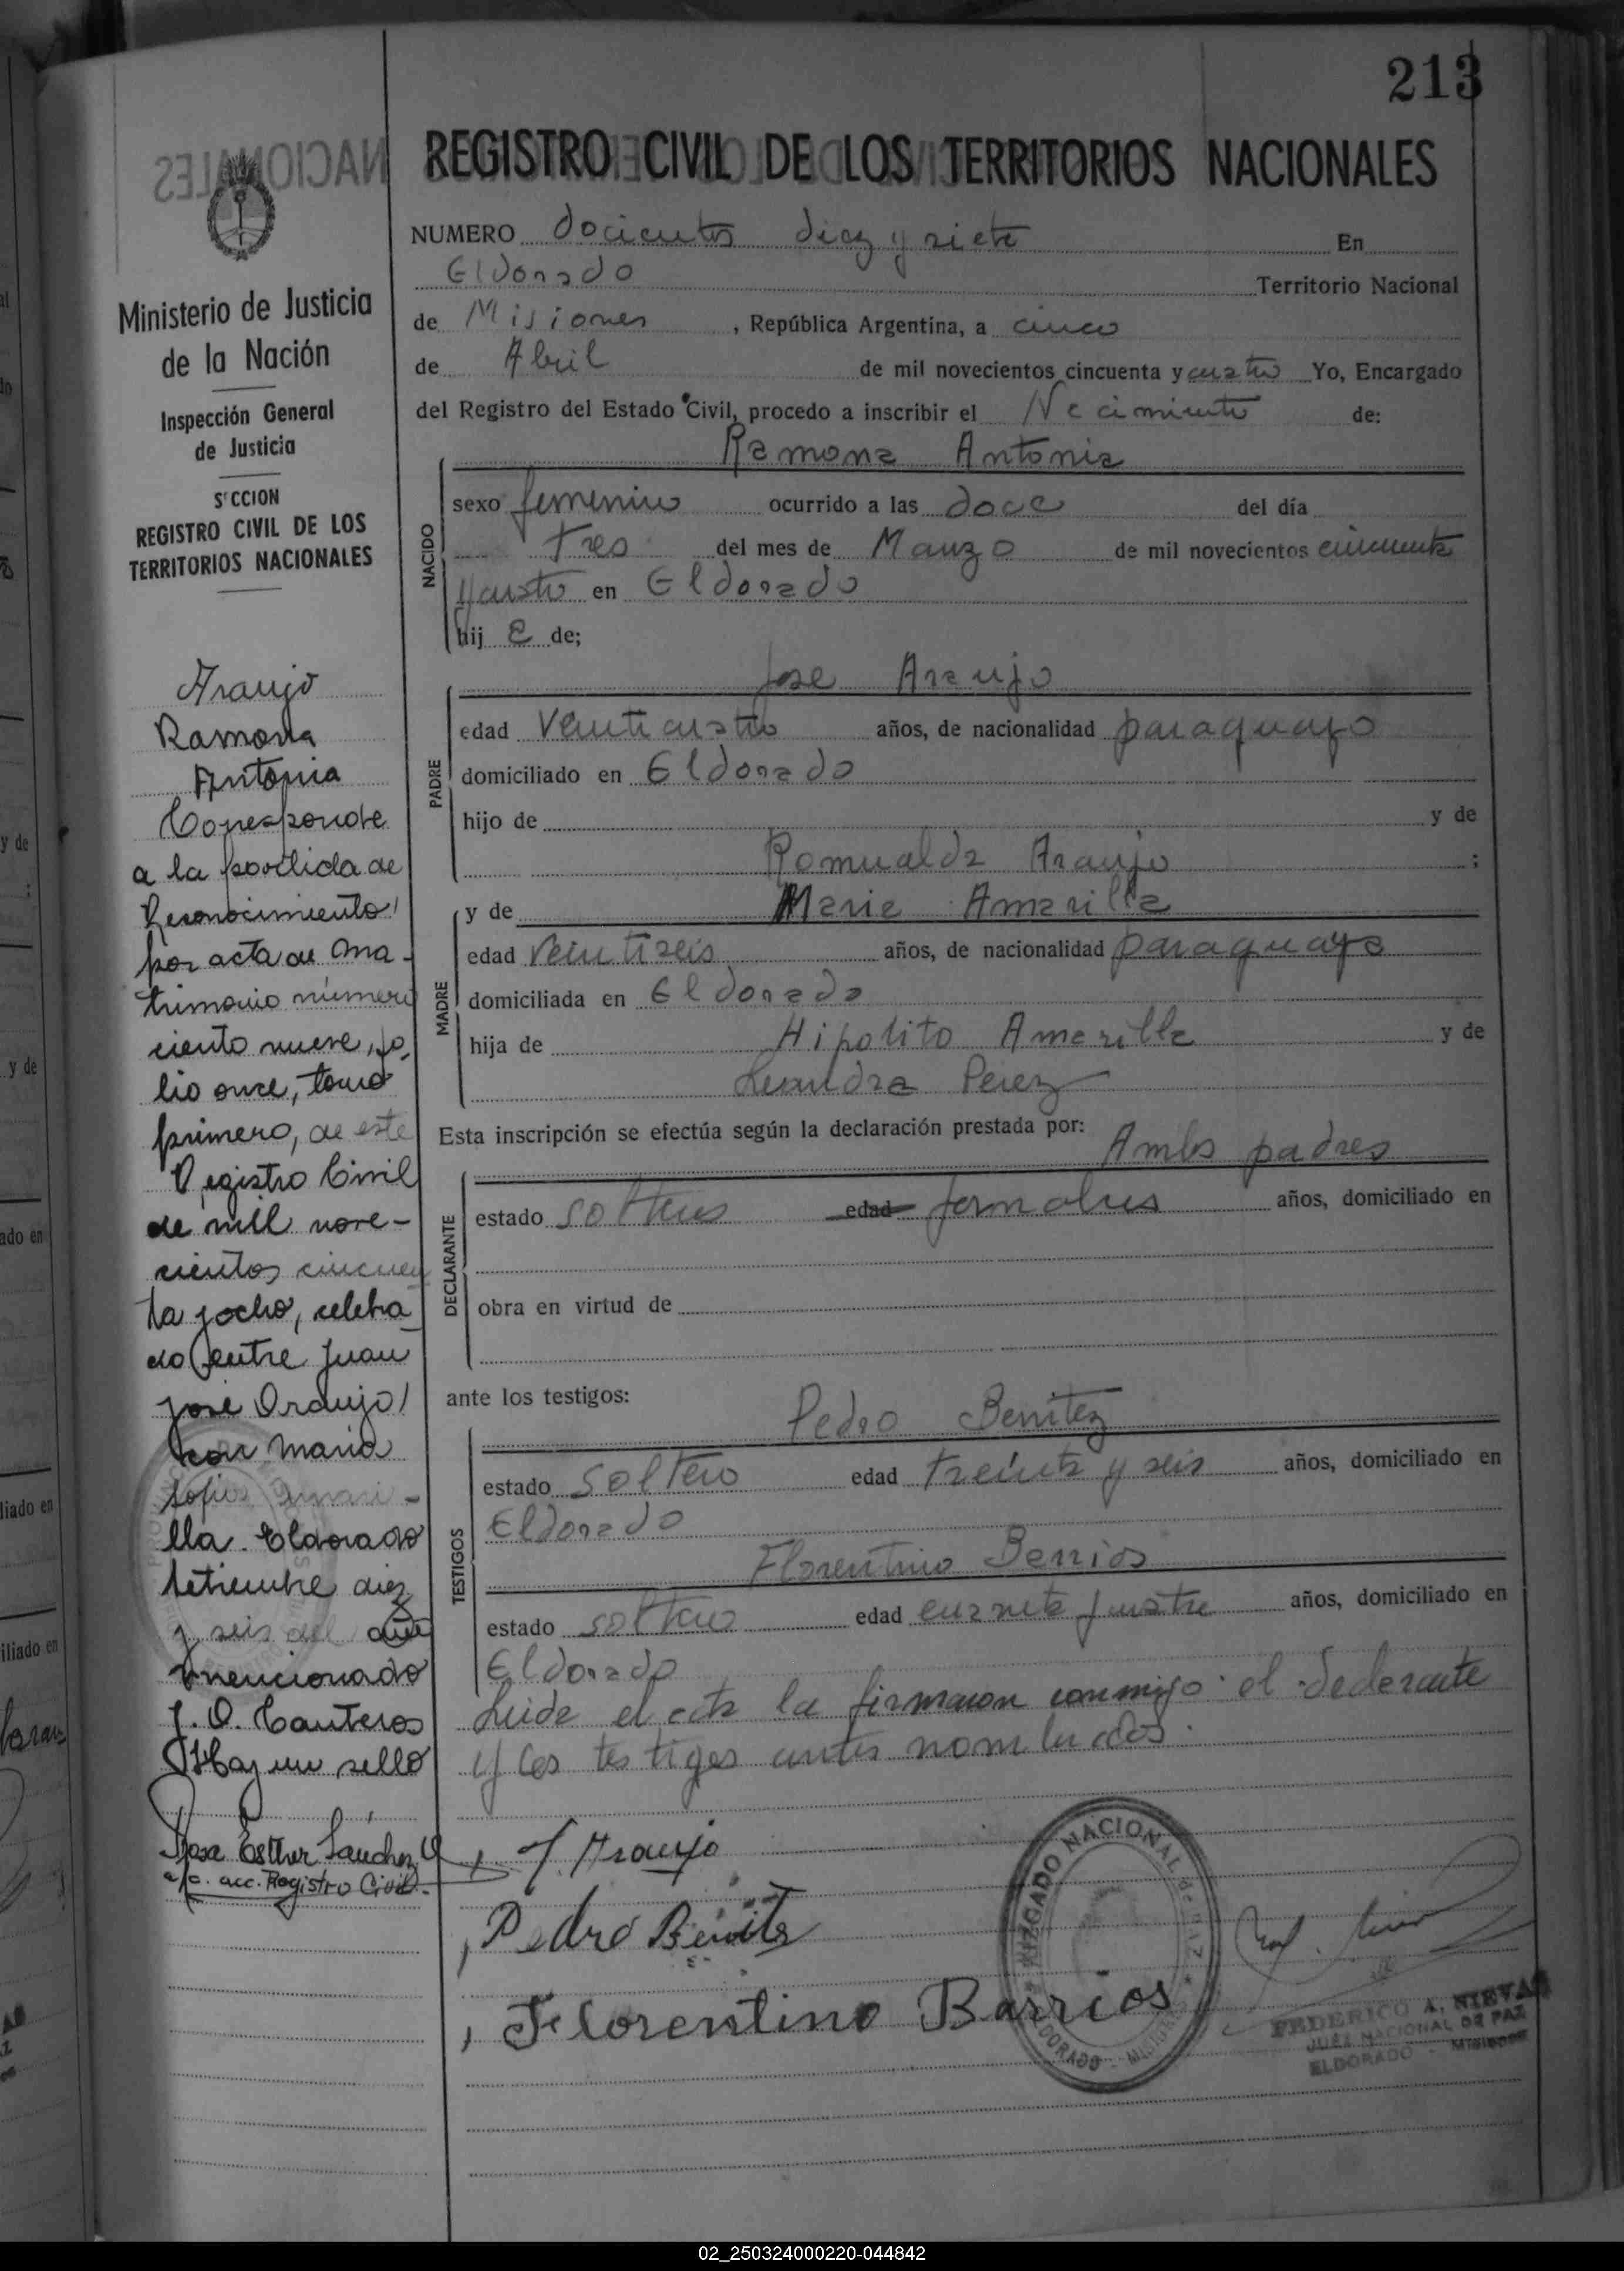 213
REGISTRO CIVIL DE LOS TERRITORIOS NACIONALES
Ministerio de Justicia
de la Nación
Inspección General
de Justicia
S'CCION
REGISTRO CIVIL DE LOS
TERRITORIOS NACIONALES
Araujo
Ramona
Antonia
Corresponde
a la partida de
Reconocimiento
por acta de ma-
trimonio número
ciento nueve, fo,
lio once, tomo
primero, de este
Registro Civil
de mil nove-
cientos cincuen
ta y ocho, celebra
do entre Juan
José Araujo
con Maria
Sofia Amari-
lla. Eldorado
Setiembre diez
y seis del año
mencionado
J. O. Canteros
Hay un sello
Rosa Esther Sánchez
a/c. acc. Registro Civil.
NUMERO docientos diez y siete En
Eldorado Territorio Nacional
de Misiones , República Argentina, a cinco
de Abril de mil novecientos cincuenta y cuatro Yo, Encargado
del Registro del Estado Civil, procedo a inscribir el Nacimiento de:
Ramona Antonia
NACIDO
sexo femenino ocurrido a las doce del día
tres del mes de Marzo de mil novecientos cincuenta
y cuatro en Eldorado
hij a de;
Jose Araujo
PADRE
edad veinticuatro años, de nacionalidad paraguayo
domiciliado en Eldorado
hijo de y de
Romualda Araujo ;
MADRE
y de Maria Amarilla
edad veintiseis años, de nacionalidad paraguaya
domiciliada en Eldorado
hija de Hipolito Amarilla y de
Leandra Perez
Esta inscripción se efectúa según la declaración prestada por:
Ambos padres
DECLARANTE
estado solteros edad años, domiciliado en
obra en virtud de
ante los testigos:
Pedro Benitez
TESTIGOS
estado soltero edad treinta y seis años, domiciliado en
Eldorado
Florentino Berrios
estado soltero edad cuarenta y cuatro años, domiciliado en
Eldorado
Leida el acta la firmaron conmigo el declarante
y los testigos antes nombrados.
J. Araujo
Pedro Benites
Florentino Barrios
JUZGADO NACIONAL de PAZ
ELDORADO - MISIONES
FEDERICO A. NIEVAS
JUEZ NACIONAL DE PAZ
ELDORADO - Misiones
02_250324000220-044842